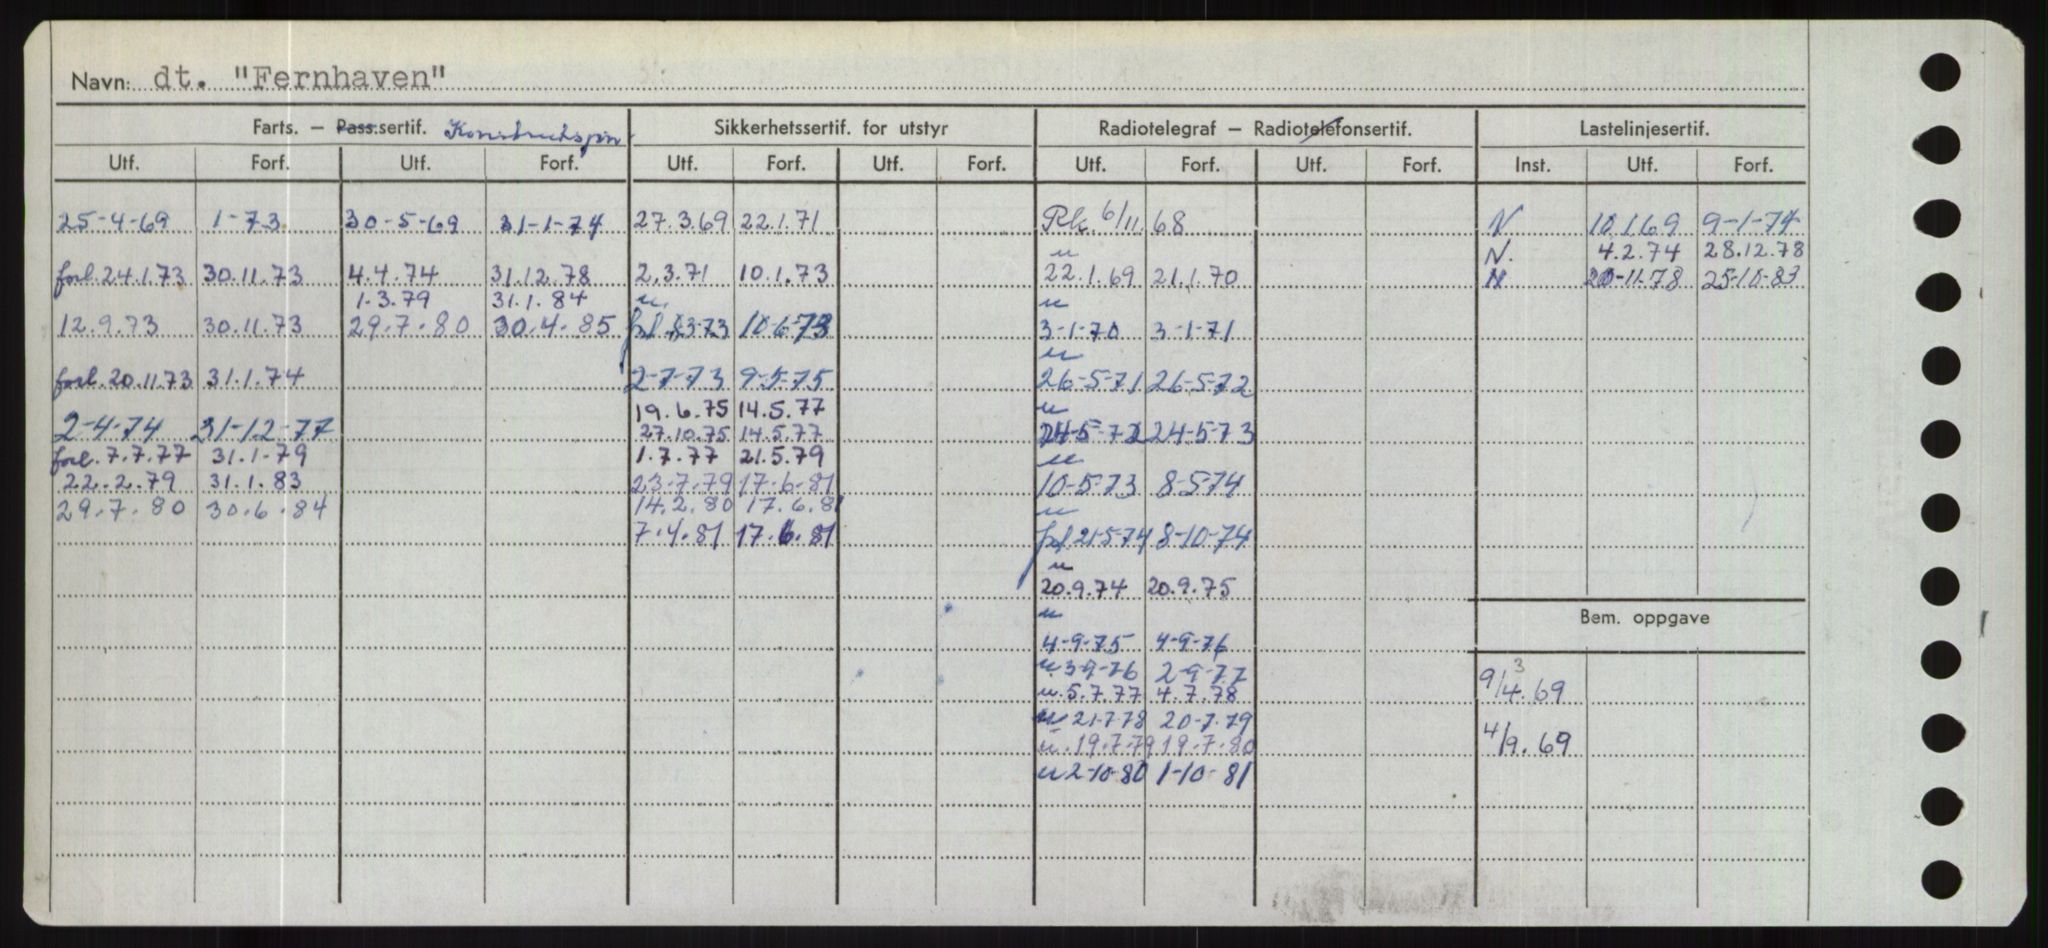 Navn: dt. "Fernhaven"
Farts. — Pass.sertif. Sikkerhetssertif. for utstyr Radiotelegraf — Radiotelefonsertif. Lastelinjesertif.
Utf. Forf. Utf. Forf. Utf. Forf. Utf. Forf. Utf. Forf. Utf. Forf. Inst. Utf. Forf.
25-4-69 1-73 30-5-69 31-1-74 27.3.69 22.1.71 Rk. 6/11 68 N 10.1.69 9-1-74
u N. 4.2.74 28.12.78
forl. 24.1.73 30.11.73 4.4.74 31.12.78 2.3.71 10.1.73 22.1.69 21.1.70 N 20-11-78 25-10-83
1.3.79 31.1.84 u. u
12.9.73 30.11.73 29.7.80 30.4.85 10-6-73 3-1-70 3-1-71
u
forl. 20.11.73 31.1.74 2-7-73 9-5-75 26-5-71 26-5-72
19.6.75 14.5.77 u
2-4-74 31-12-77 27.10.75 14.5.77 24-5-72 24-5-73
forl. 7.7.77 31.1.79 1.7.77 21.5.79 u
22.2.79 31.1.83 23-7-79 17-6-81 10-5-73 8-5-74
29.7.80 30.6.84 14.2.80 17.6.81 u
7.4.81 17.6.81 fel. 21-5-74 8-10-74
u
20.9.74 20.9.75
u
Bem. oppgave
4-9-75 4-9-76
u. 3-9-76 2-9-77
9/4. 3 69
u. 5.7.77 4.7.78
u 21-7-78 20-7-79
4/9. 69
u. 19.7.79 19.7.80
u 2-10-80 1-10-81